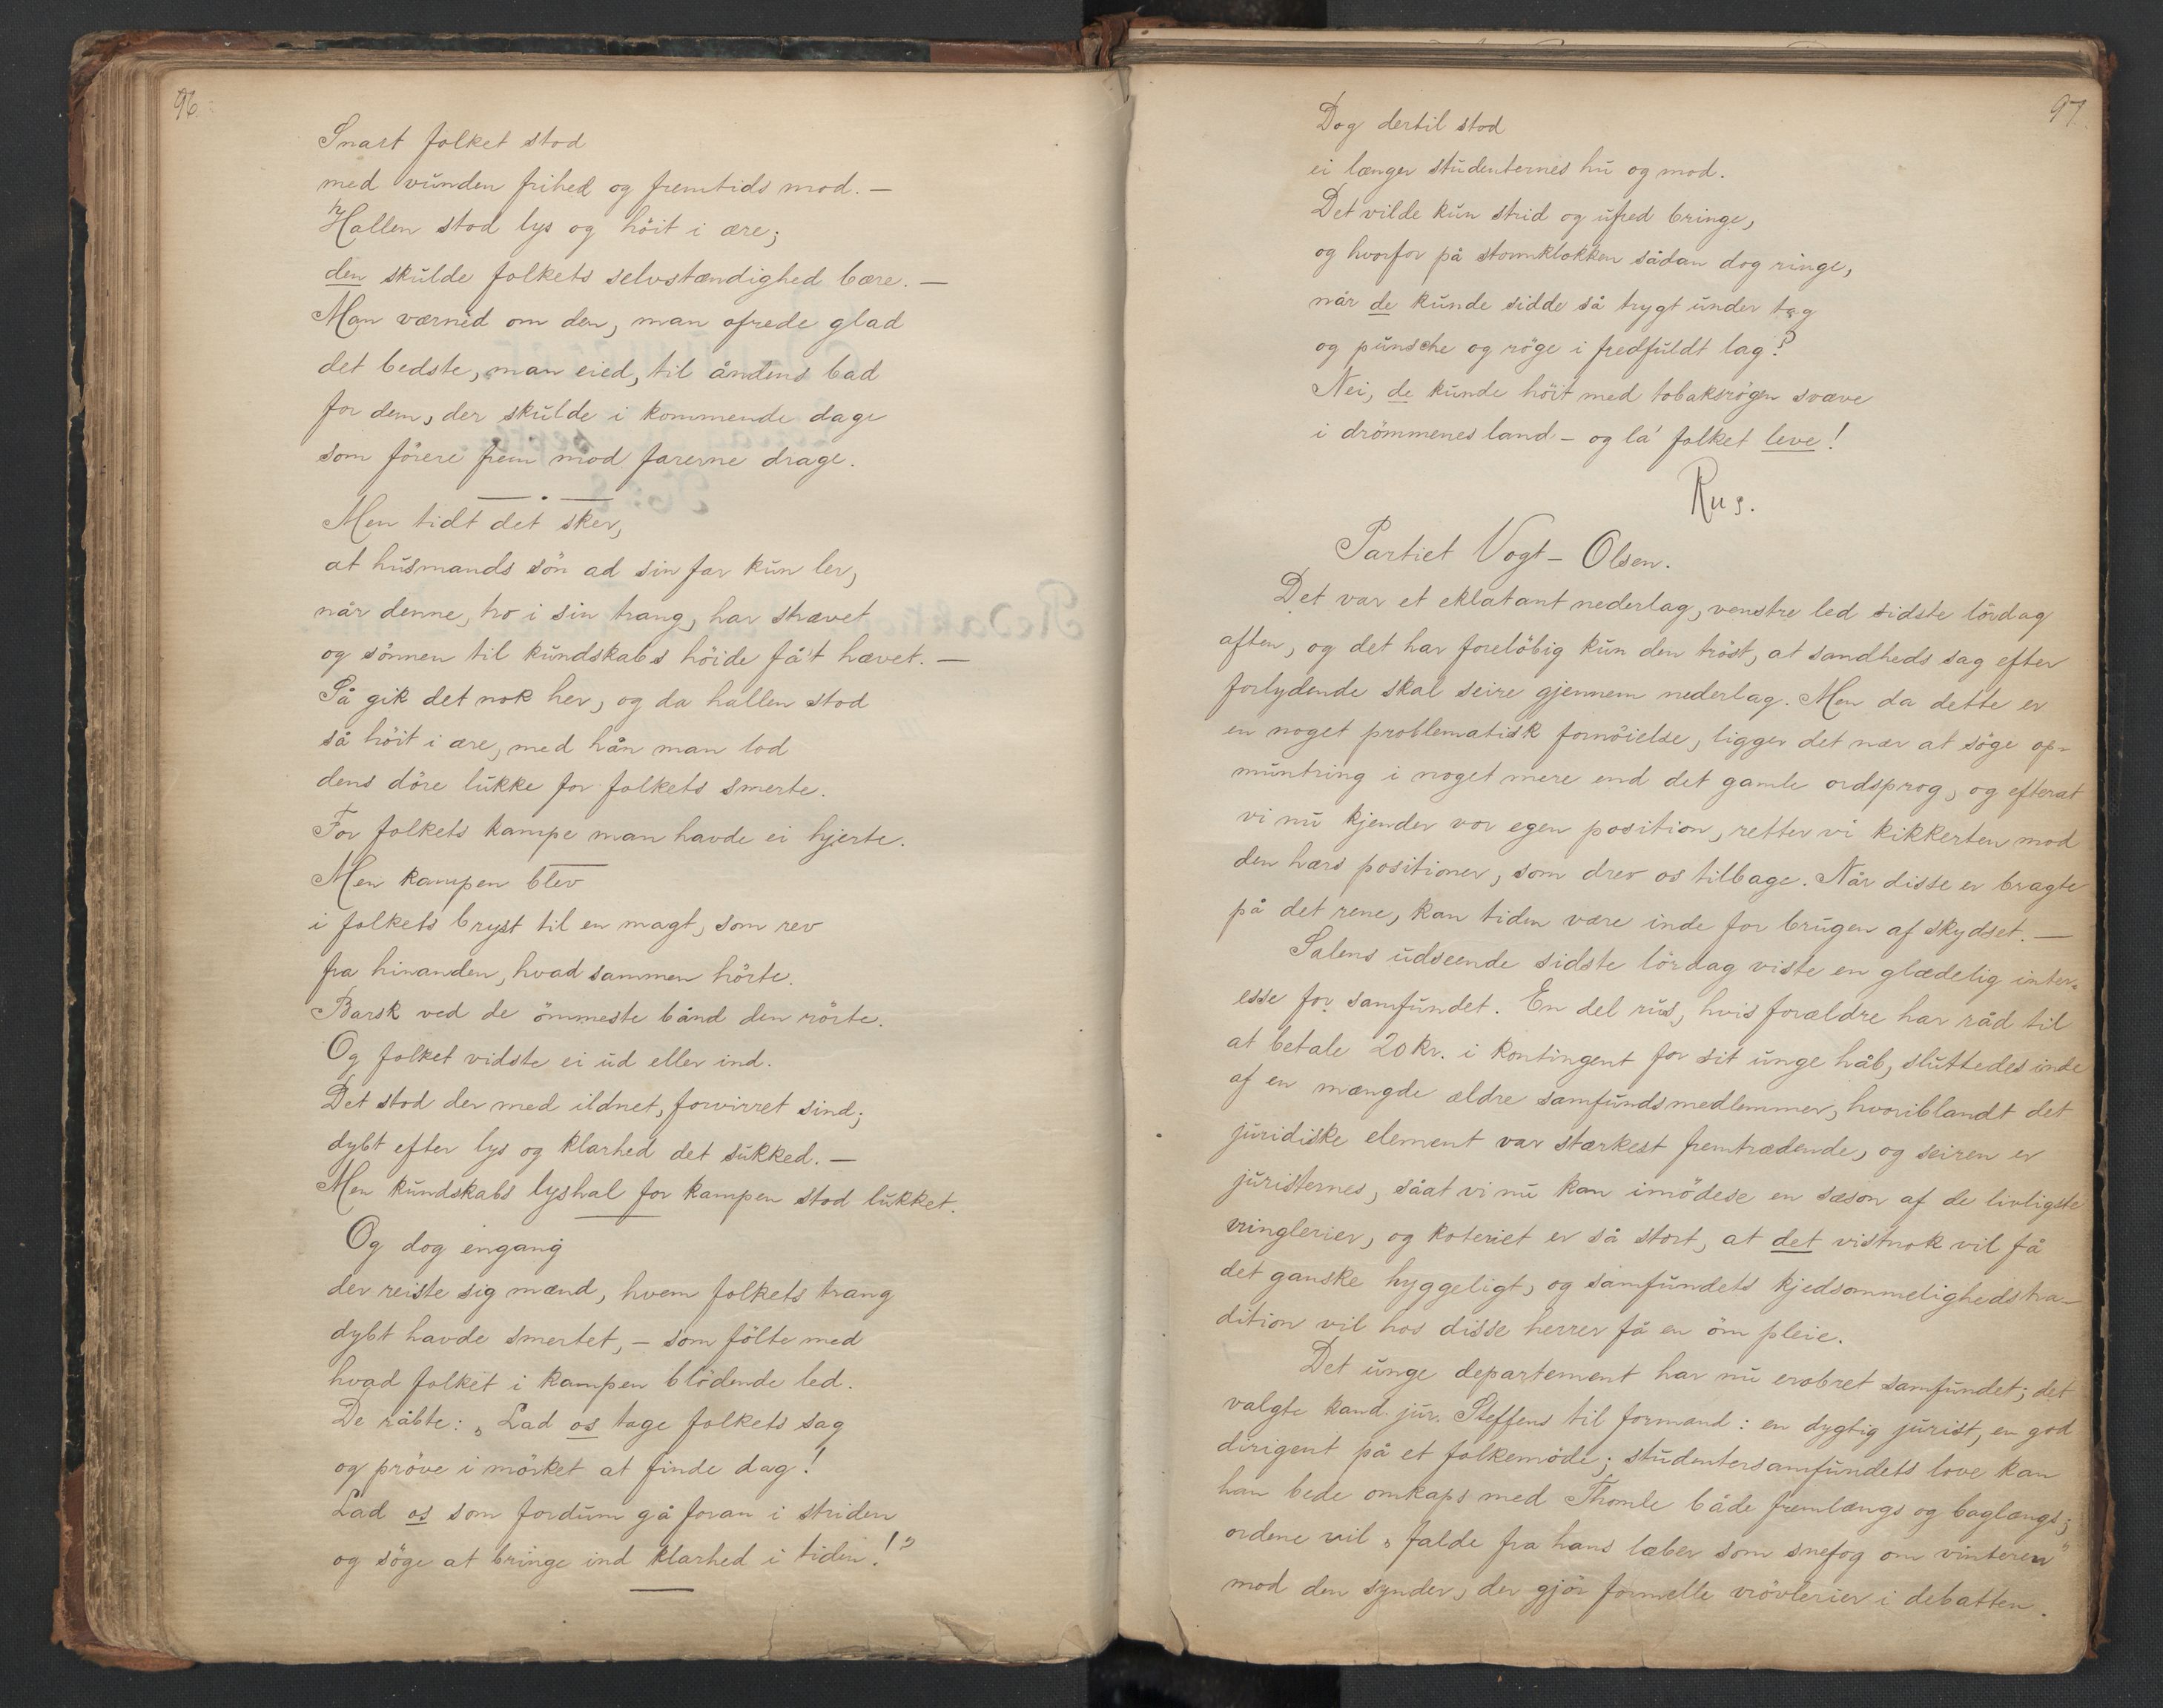 96.
Snart folket stod
med vunden frihed og fremtids mod. —
Hallen stod lys og höit i ære;
den skulde folkets selvstændighed bære. —
Man værned om den, man ofrede glad
det bedste, man eied, til åndens bad
for dem, der skulde i kommende dage
som förere frem mod farerne drage.
Men tidt det sker,
at husmands sön ad sin far kun ler,
når denne, tro i sin trang, har strævet
og sönnen til kundskabs höide få't hævet. —
Så gik det nok her, og da hallen stod
så höit i ære, med hån man lod
dens döre lukke for folkets smerte.
For folkets kampe man havde ei hjerte.
Men kampen blev
i folkets bryst til en magt, som rev
fra hinanden, hvad sammen hörte.
Barsk ved de ömmeste bånd den rörte.
Og folket vidste ei ud eller ind.
Det stod der med ildnet, forvirret sind;
dybt efter lys og klarhed det sukked. —
Men kundskabs lyshal for kampen stod lukket.
Og dog engang
der reiste sig mænd, hvem folkets trang
dybt havde smertet, — som fölte med
hvad folket i kampen blödende led.
De råbte: „Lad os tage folkets sag
og pröve i mörket at finde dag!
Lad os som fordum gå foran i striden
og söge at bringe ind klarhed i tiden!"
97.
Dog dertil stod
ei længer studenternes hu og mod.
Det vilde kun strid og ufred bringe,
og hvorfor på stormklokken sådan dog ringe,
når de kunde sidde så trygt under tag
og punsche og röge i fredfuldt lag?
Nei, de kunde höit med tobaksrögen svæve
i drömmenes land — og la' folket leve!
Rus.
Partiet Vogt — Olsen.
Det var et eklatant nederlag, venstre led sidste lördag
aften, og det har forelöbig kun den tröst, at sandheds sag efter
forlydende skal seire gjennem nederlag. Men da dette er
en noget problematisk fornöielse, ligger det nær at söge op-
muntring i noget mere end det gamle ordsprog, og efterat
vi nu kjender vor egen position, retter vi kikkerten mod
den hærs positioner, som drev os tilbage. Når disse er bragte
på det rene, kan tiden være inde for brugen af skydset. —
Salens udseende sidste lördag viste en glædelig inter-
esse for samfundet. En del rus, hvis forældre har råd til
at betale 20 kr. i kontingent for sit unge håb, sluttedes inde
af en mængde ældre samfundsmedlemmer, hvoriblandt det
juridiske element var stærkest fremtrædende, og seiren er
juristernes, såat vi nu kan imödese en sæson af de livligste
vringlerier, og koteriet er så stort, at det vistnok vil få
det ganske hyggeligt, og samfundets kjedsommelighedstra-
dition vil hos disse herrer få en öm pleie.
Det unge departement har nu erobret samfundet; det
valgte kand. jur. Steffens til formand: en dygtig jurist, en god
dirigent på et folkemöde; studentersamfundets love kan
han bede omkaps med Thomle både fremlængs og baglængs;
ordene vil „falde fra hans læber som snefog om vinteren"
mod den synder, der gjör formelle vrövlerier i debatten.